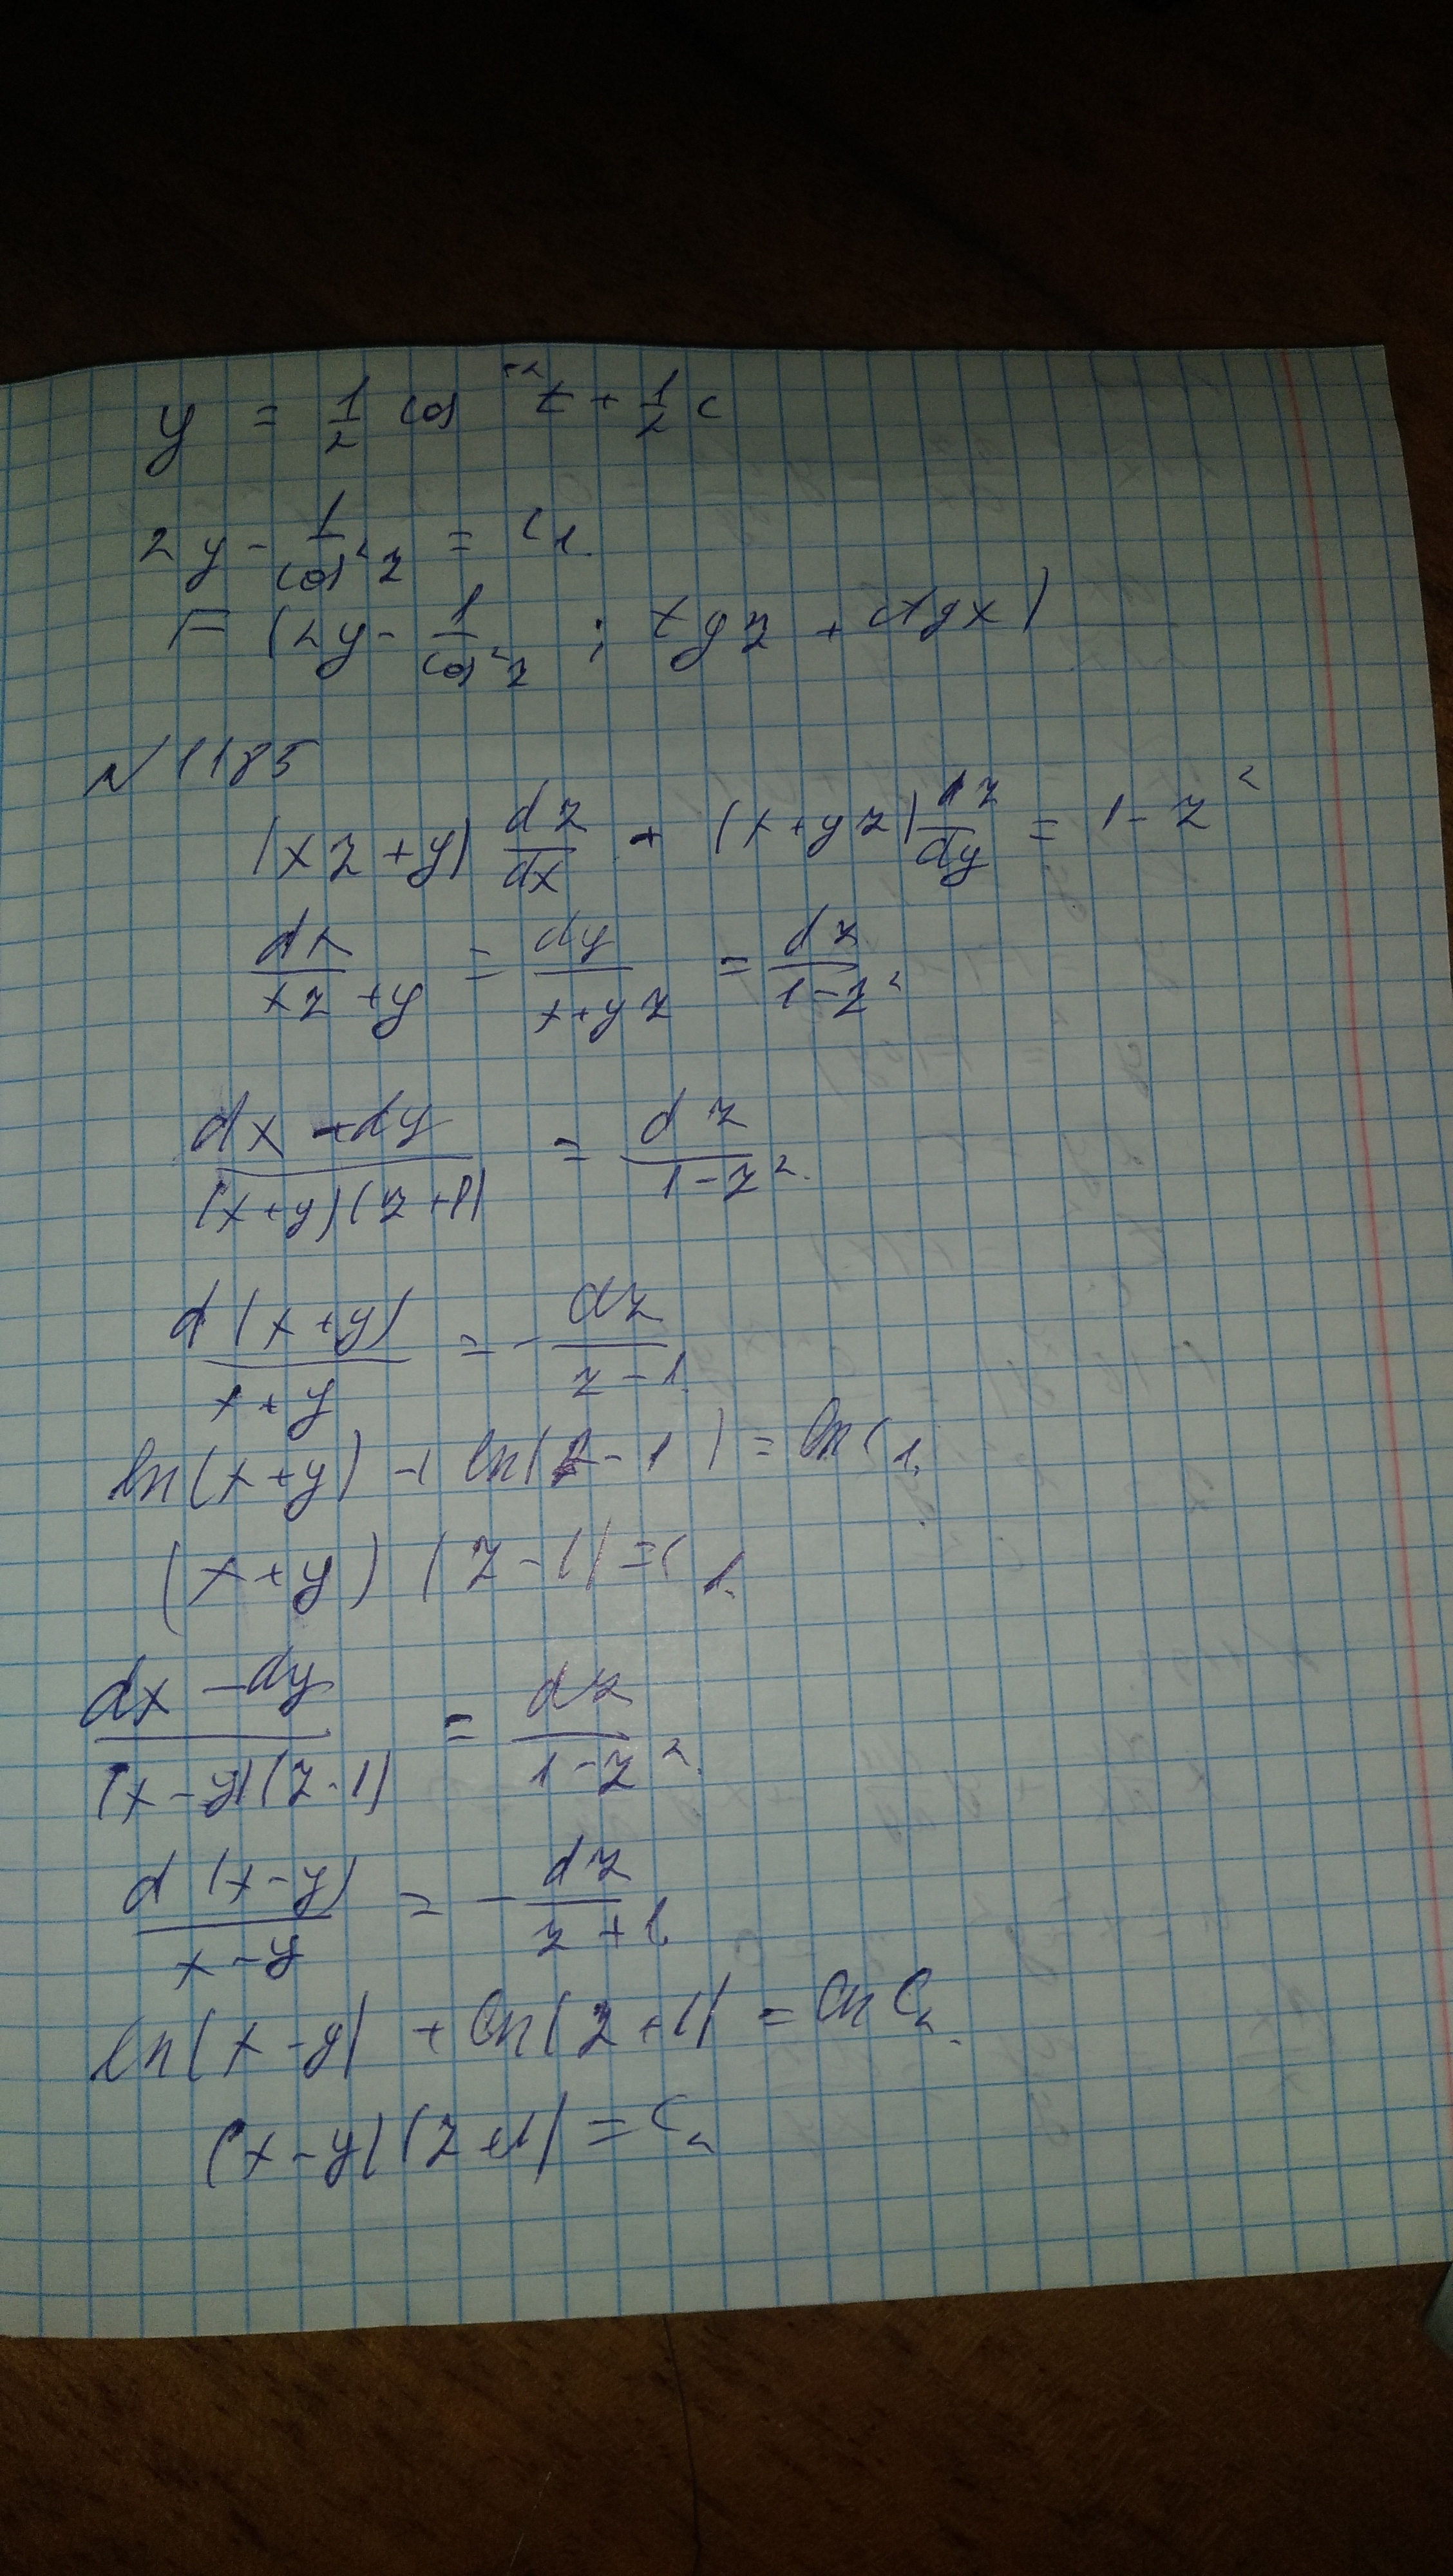 y = 1/2 cos^-2 z + 1/2 c
2y - 1/cos²z = C1.
F (2y - 1/cos²z ; tgz + ctgx)
N1185
(xz+y) dz/dx + (x+yz) dz/dy = 1-z²
dx/(xz+y) = dy/(x+yz) = dz/(1-z²)
(dx+dy)/((x+y)(z+1)) = dz/(1-z²).
d(x+y)/(x+y) = - dz/(z-1).
ln(x+y) + ln(z-1) = ln C1.
(x+y)(z-1) = C1.
(dx-dy)/((x-y)(z-1)) = dz/(1-z²).
d(x-y)/(x-y) = - dz/(z+1).
ln(x-y) + ln(z+1) = ln C2.
(x-y)(z+1) = C2